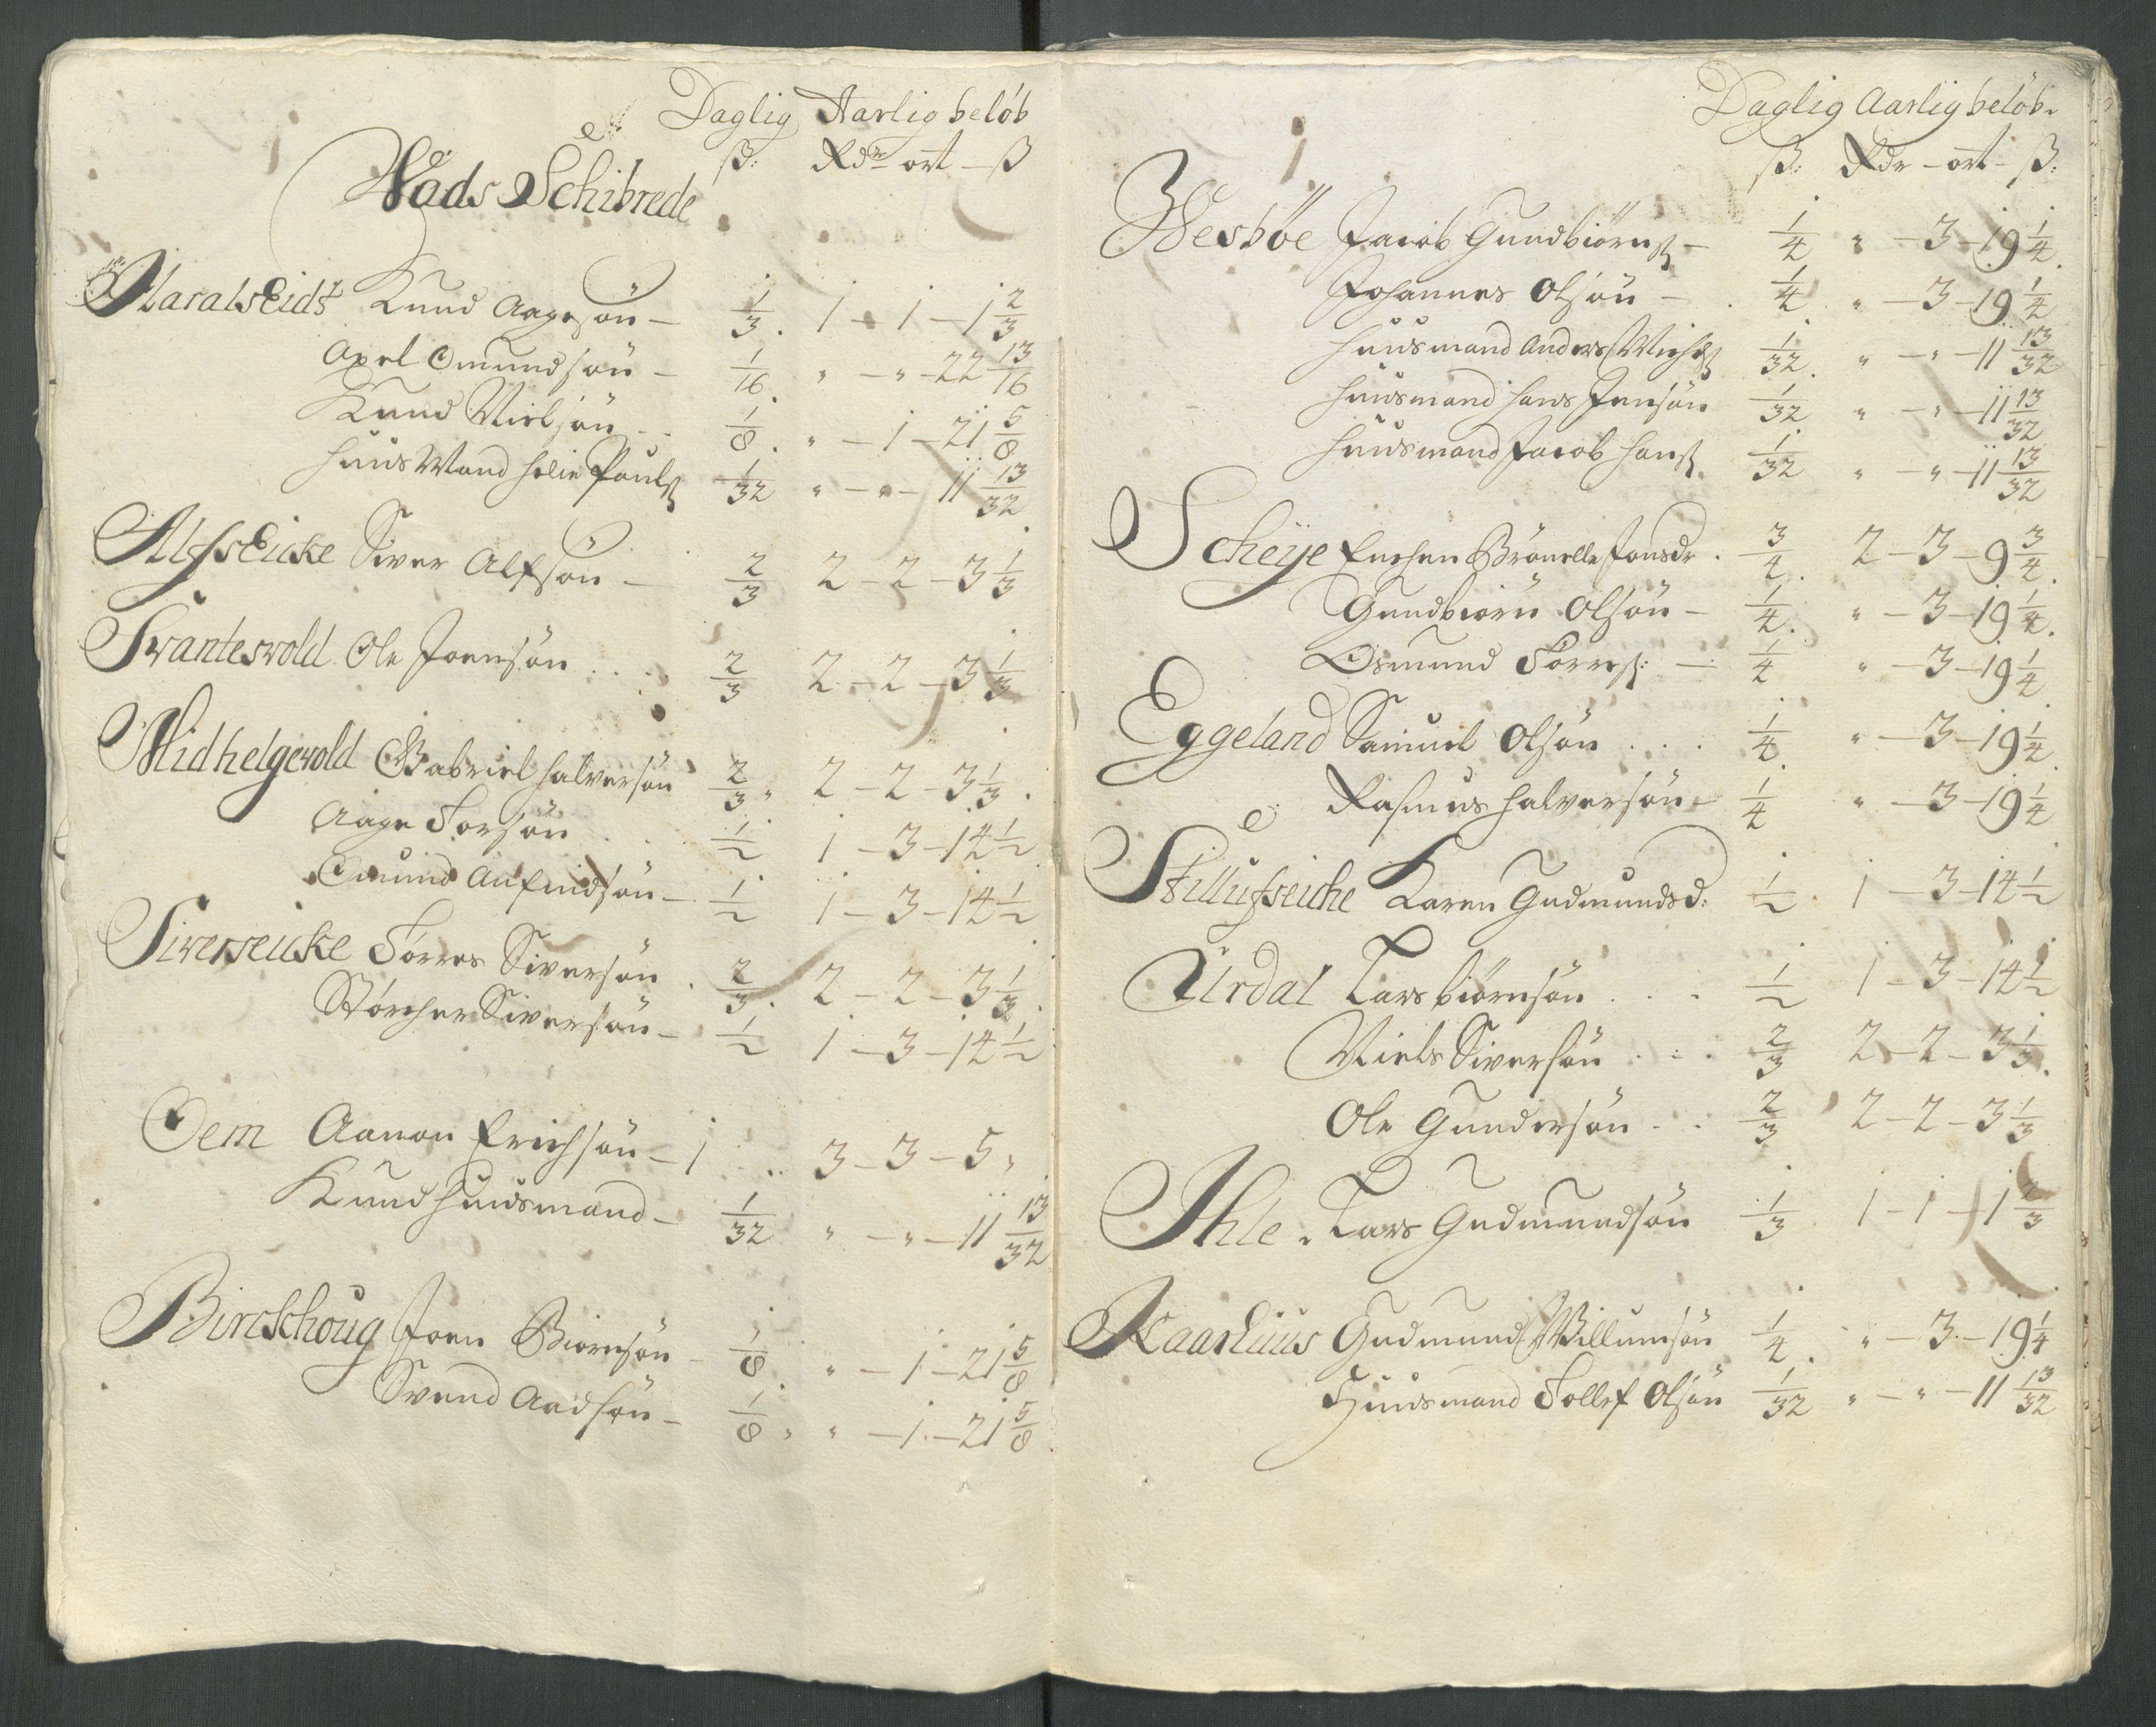 Daglig Aarlig beløb
ß: Rdr - ort - ß
Wads Schibrede
Haralseidt Knud Aagesön — 1/3. 1 - 1 - 1 2/3
Axel Omundsön — 1/16. " - " - 22 13/16
Knud Nielsön - . 1/8. " - 1 - 21 5/8
Huus Mand Helie Pouls 1/32 " - " - 11 13/32
Alfseicke Siver Alfsön — 2/3 2 - 2 - 3 1/3
Svantesvold Ole Joensön . . . 2/3 2 - 2 - 3 1/3
Midhelgevold Gabriel Halversön 2/3 " 2 - 2 - 3 1/3.
Aage Torsön . . 1/2 1 - 3 - 14 1/2
Omund Anfindsön — 1/2 1 - 3 - 14 1/2
Siverseicke Torres Siversön . 2/3. 2 - 2 - 3 1/3.
Störcher Siversön — 1/2 1 - 3 - 14 1/2
Oem Aanon Erichsön — 1 .. 3 - 3 - 5 "
Knud Huusmand — 1/32 " - " - 11 13/32
Birckhoug Joen Biörnsön — 1/8 " - 1 - 21 5/8
Svend Aadsön — 1/8 " " - 1 - 21 5/8
Daglig Aarlig beløb.
ß: Rdr - ort - ß:
Wesböe Jacob Gundbiörns — 1/4 " - 3 - 19 1/4.
Johannes Olsön — . 1/4. " - 3 - 19 1/4
Huusmand Anders Michels 1/32. " - " - 11 13/32
Huusmand Hans Jensön 1/32 " - " - 11 13/32
Huusmand Jacob Hans 1/32 " - " - 11 13/32
Scheye Enchen Brönelle Jonsdr . 3/4. 2 - 3 - 9 3/4.
Gundbiörn Olsön — 1/4. " - 3 - 19 1/4.
Osmund Torres: — 1/4 " - 3 - 19 1/4
Eggeland Samuel Olsön . . . 1/4. " - 3 - 19 1/4.
Rasmus Halversön — 1/4 " - 3 - 19 1/4
Stillufseiche Karen Gudmundsd: 1/2. 1 - 3 - 14 1/2
Urdal Lars biörnsön . . . 1/2 1 - 3 - 14 1/2
Niels Siversön . . . 2/3 2 - 2 - 3 1/3.
Ole Gundersön . . . 2/3 2 - 2 - 3 1/3
Ihle . Lars Gudmundsön 1/3 1 - 1 - 1 2/3
Kaarhuus Gudmund Willumsön 1/4. " - 3 - 19 1/4
Huusmand Tollef Olsön 1/32 " - " - 11 13/32